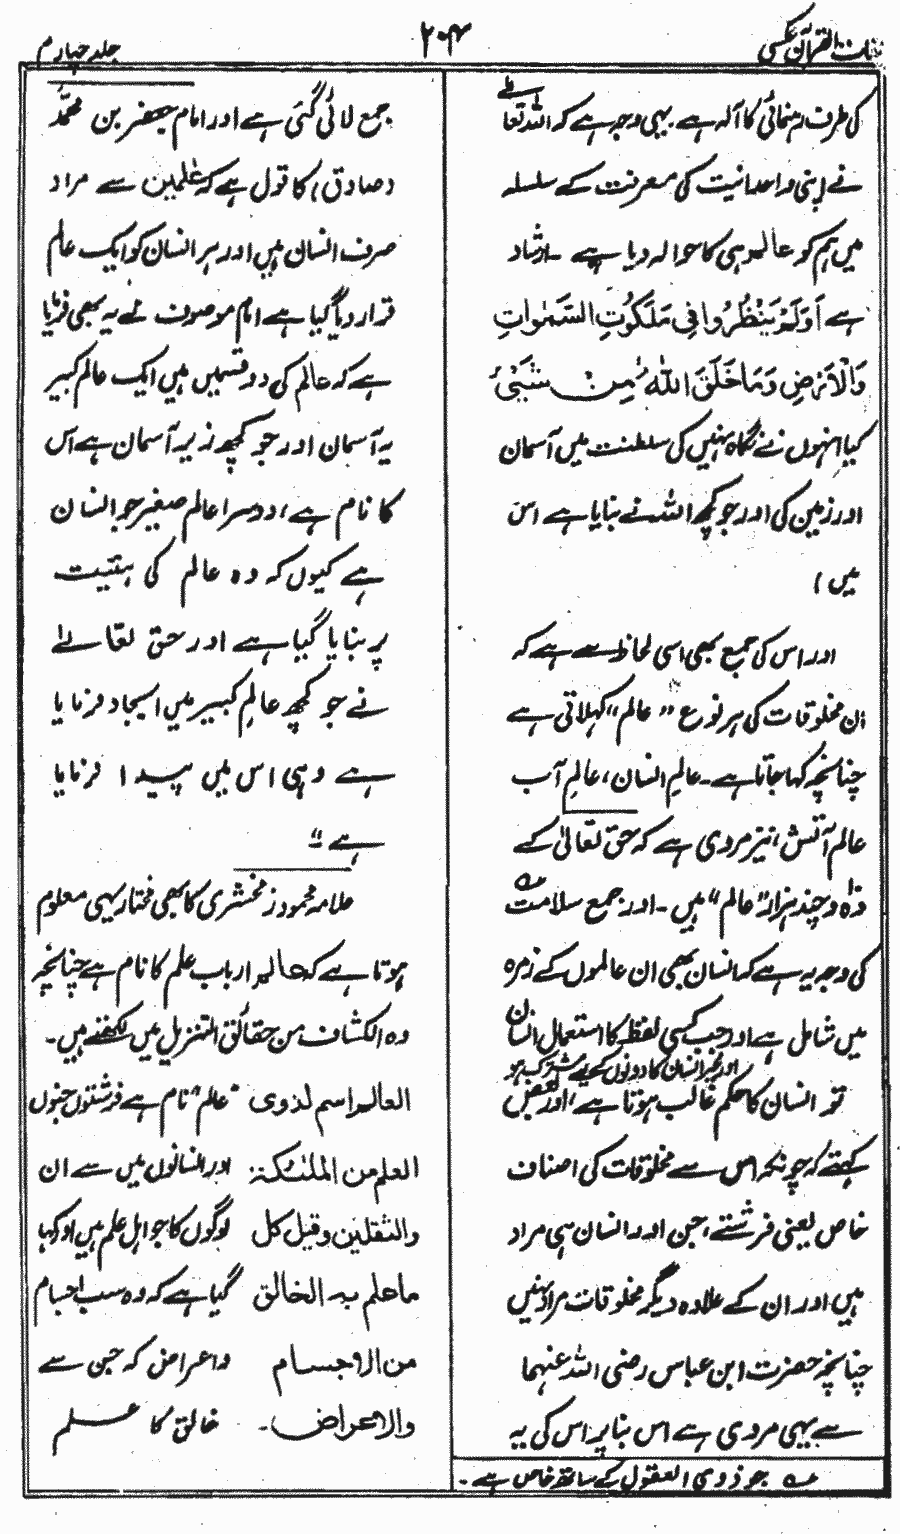 لغات القرآن عکسی
۲۰۴
جلد چہارم
کی طرف رہنمائی کا آلہ ہے یہی وجہ ہے کہ اللہ تعالےٰ
نے اپنی وحدانیت کی معرفت کے سلسلہ
میں ہم کو عالم ہی کا حوالہ دیا ہے۔ ارشاد
ہے اَوَلَمْ يَنْظُرُوا فِي مَلَكُوتِ السَّمٰوَاتِ
وَالْاَرْضِ وَمَا خَلَقَ اللهُ مِنْ شَيْءٍ
کیا انہوں نے نگاہ نہیں کی سلطنت میں آسمان
اور زمین کی اور جو کچھ اللہ نے بنایا ہے اس
میں)
اور اس کی جمع بھی اسی لحاظ سے ہے کہ
ان مخلوقات کی ہر نوع "عالم" کہلاتی ہے
چنانچہ کہا جاتا ہے۔ عالمِ انسان، عالمِ آب
عالم آتش، نیز مروی ہے کہ حق تعالیٰ کے
دہ و چند ہزار "عالم" میں۔ اور جمع سلامت ؎
کی وجہ یہ ہے کہ انسان بھی ان عالموں کے زمرہ
میں شامل ہے اور جب کسی لفظ کا استعمال انسان
اور غیر انسان کا دونوں کے لیے مشترک ہو
تو انسان کا حکم غالب ہوتا ہے، اور بعض
کہتے کہ چونکہ اس سے مخلوقات کی اصناف
خاص یعنی فرشتے، جن اور انسان ہی مراد
ہیں اور ان کے علاوہ دیگر مخلوقات مراد نہیں
چنانچہ حضرت ابن عباس رضی اللہ عنہما
سے یہی مروی ہے اس بنا پر اس کی یہ
؎ جو ذوی العقول کے ساتھ خاص ہے۔
جمع لائی گئی ہے اور امام جعفر بن محمدؒ
(صادق) کا قول ہے کہ عٰلمین سے مراد
صرف انسان ہیں اور ہر انسان کو ایک عالم
قرار دیا گیا ہے امام موصوف نے یہ بھی فرمایا
ہے کہ عالم کی دو قسمیں ہیں ایک عالمِ کبیر
یہ آسمان اور جو کچھ زیر آسمان ہے اس
کا نام ہے، دوسرا عالمِ صغیر جو انسان
ہے کیوں کہ وہ عالم کی ہیئیت
پر بنایا گیا ہے اور حق تعالےٰ
نے جو کچھ عالمِ کبیر میں ایجاد فرمایا
ہے وہی اس میں پیدا فرمایا
ہے"
علامہ محمود زمخشری کا بھی مختار یہی معلوم
ہوتا ہے کہ عالم ارباب علم کا نام ہے چنانچہ
وہ الکشاف من حقائق التنزیل میں لکھتے ہیں۔
العالم اسم لذوی "عالم" نام ہے فرشتوں جنوں
العلم من الملٰئکة اور انسانوں میں سے ان
والثقلین وقیل کل لوگوں کا جو اہل علم ہیں اور کہا
ما علم به الخالق گیا ہے کہ وہ سب اجسام
من الاجسام و اعراض کہ جن سے
والاعراض۔ خالق کا علم